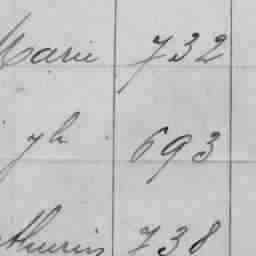 Marie 732
yh 693
athurin 738